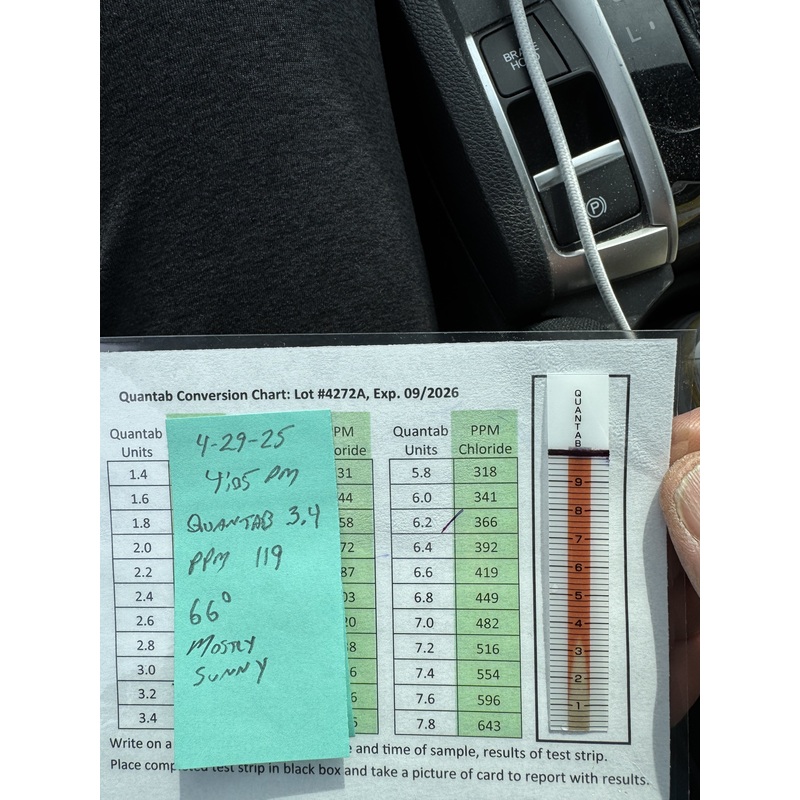 BRAKE
HOLD
L
P
Quantab Conversion Chart: Lot #4272A, Exp. 09/2026
Quantab Units
1.4
1.6
1.8
2.0
2.2
2.4
2.6
2.8
3.0
3.2
3.4
4-29-25
4:05 PM
QUANTAB 3.4
PPM 119
66°
MOSTLY
SUNNY
PM
oride
31
44
58
72
87
03
20
8
6
6
5
Quantab Units PPM Chloride
5.8 318
6.0 341
6.2 366
6.4 392
6.6 419
6.8 449
7.0 482
7.2 516
7.4 554
7.6 596
7.8 643
QUANTAB
9
8
7
6
5
4
3
2
1
Write on a e and time of sample, results of test strip.
Place completed test strip in black box and take a picture of card to report with results.